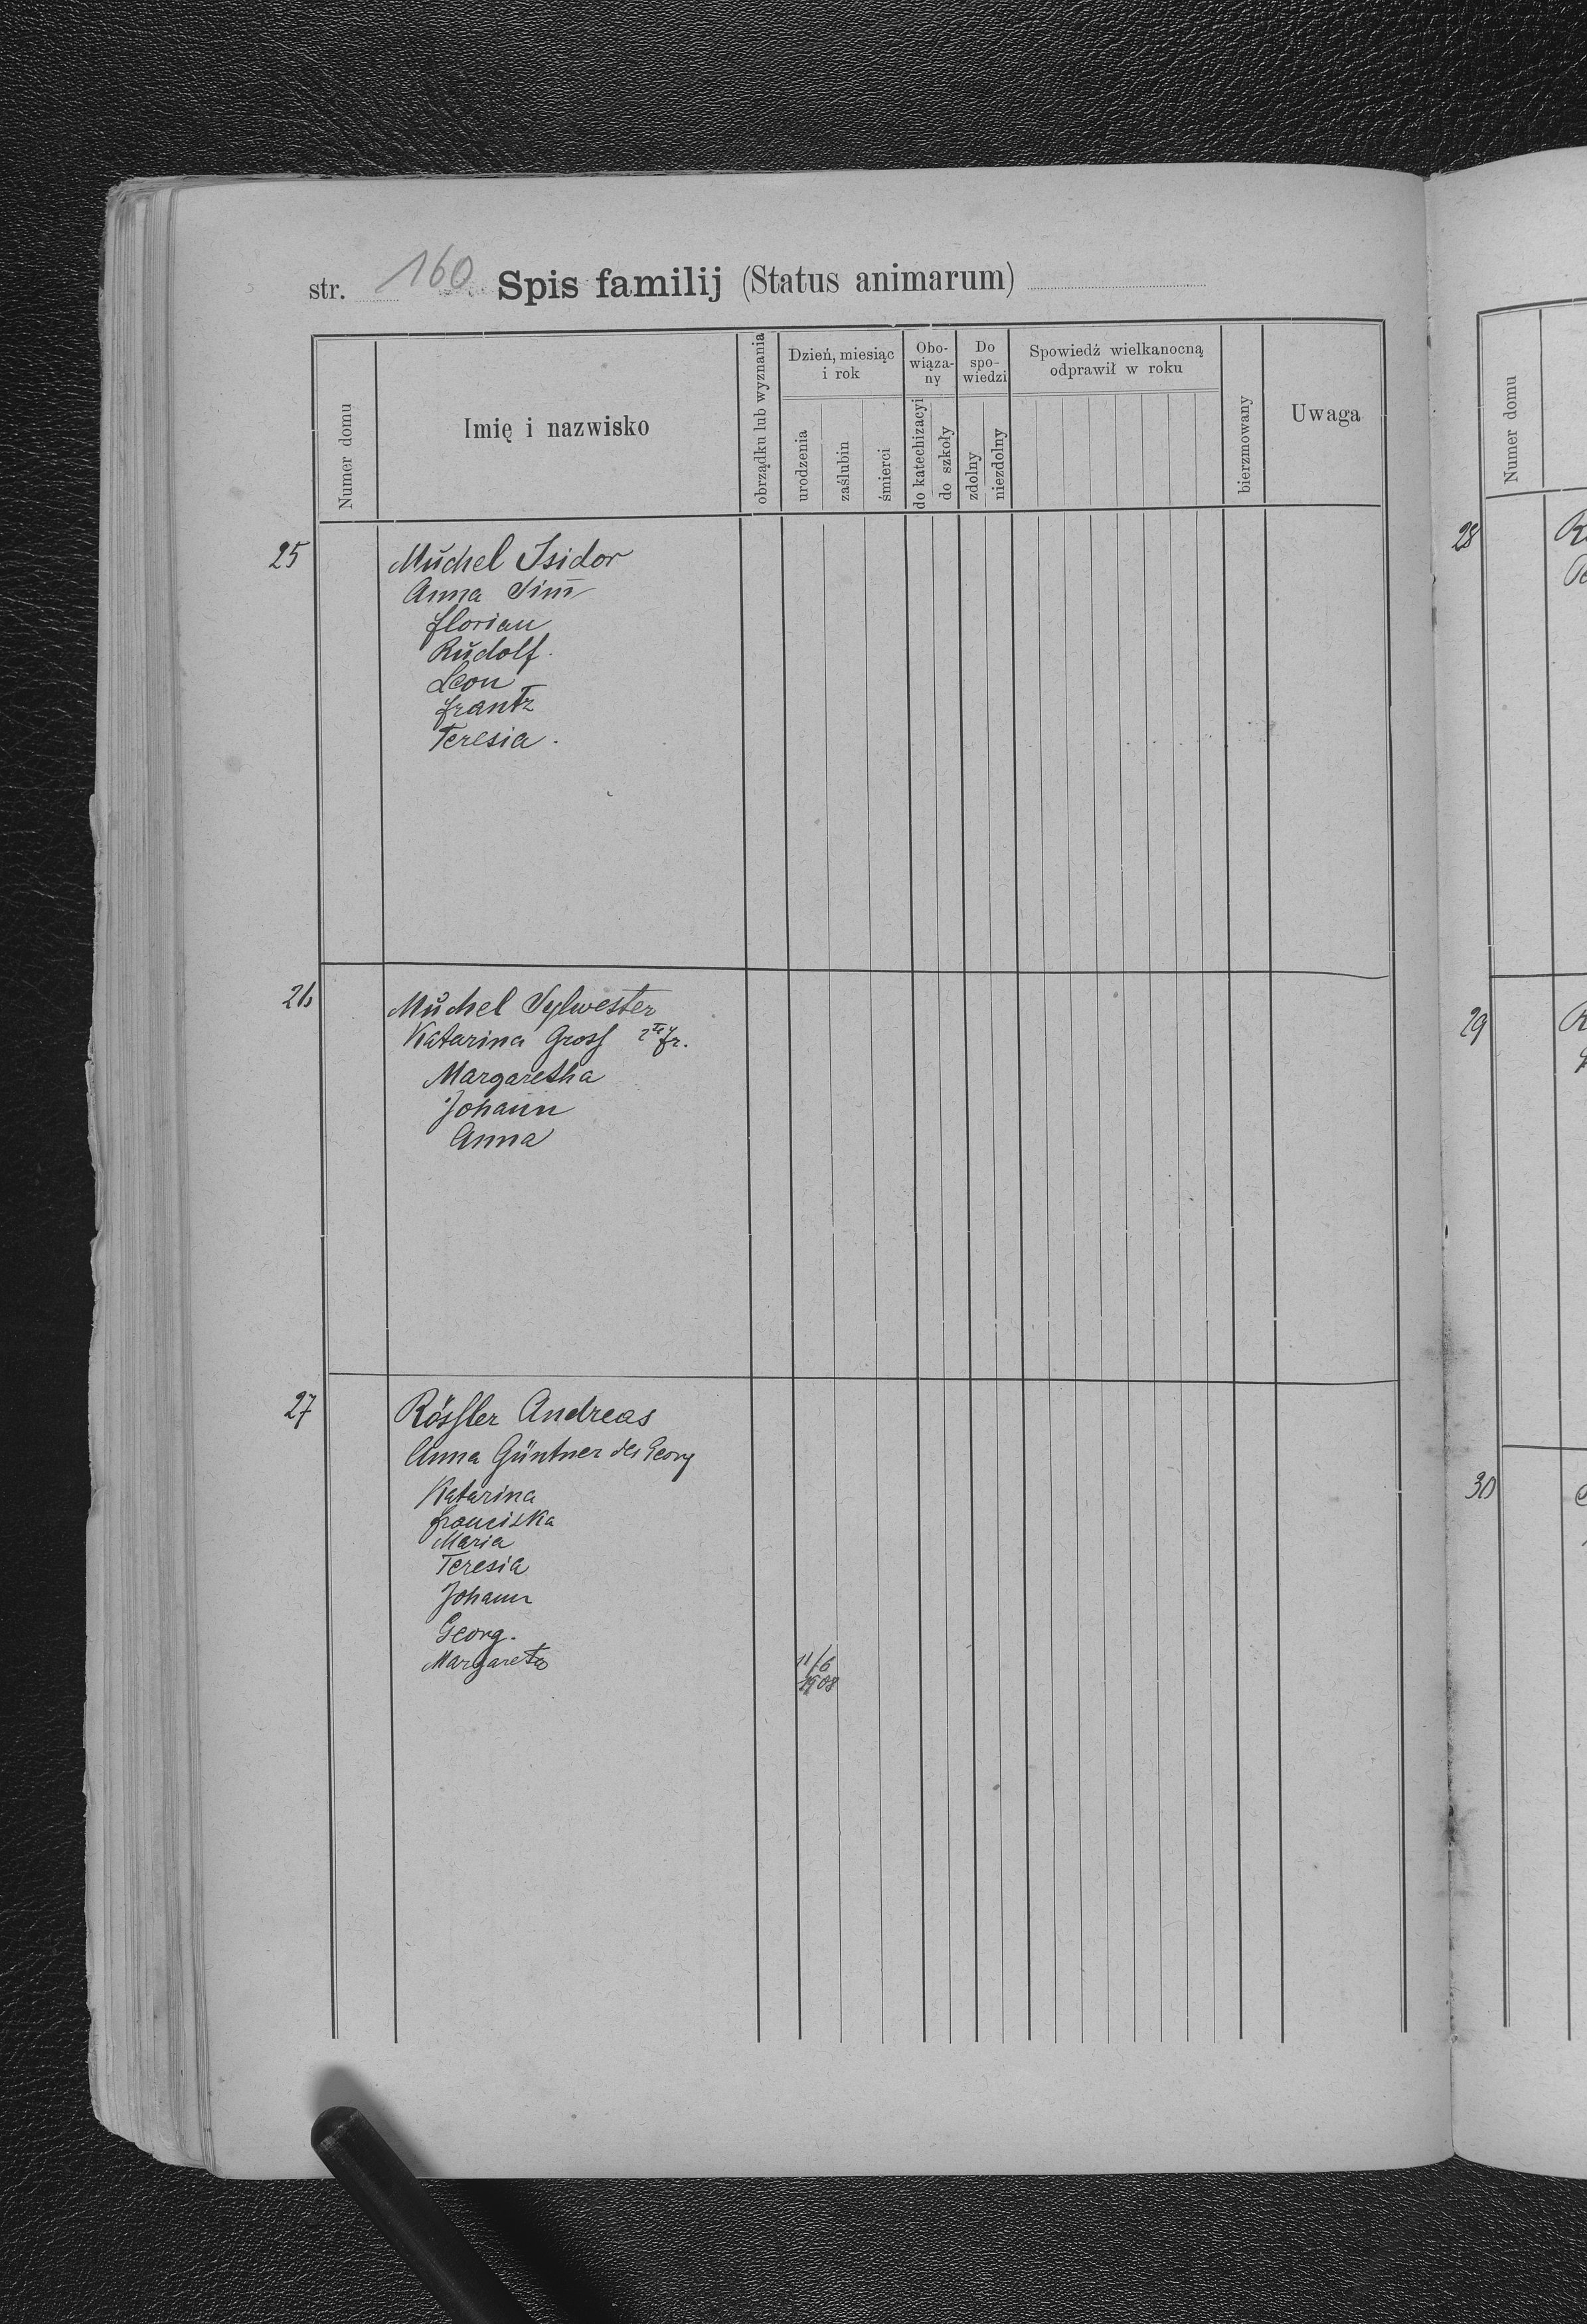 str. 160 Spis familij (Status animarum)
Numer domu
Imię i nazwisko
obrządku lub wyznania
Dzień, miesiąc i rok
urodzenia
zaślubin
śmierci
Obo-wiąza-ny
do katechizacyi
do szkoły
Do spo-wiedzi
zdolny
niezdolny
Spowiedź wielkanocną odprawił w roku
bierzmowany
Uwaga
25 Mŭchel Isidor
Anna
Florian
Rŭdolf.
Leon
Frantz
Teresia.
26 Mŭchel Sylwester
Katarina Gross 2te Fr.
Margaretha
Johann
Anna
27 Rössler Andreas
Anna Güntner des Georg
Katarina
Franciska
Maria
Teresia
Johann
Georg.
Margareta 11/6
1908
Numer domu
28
29
30